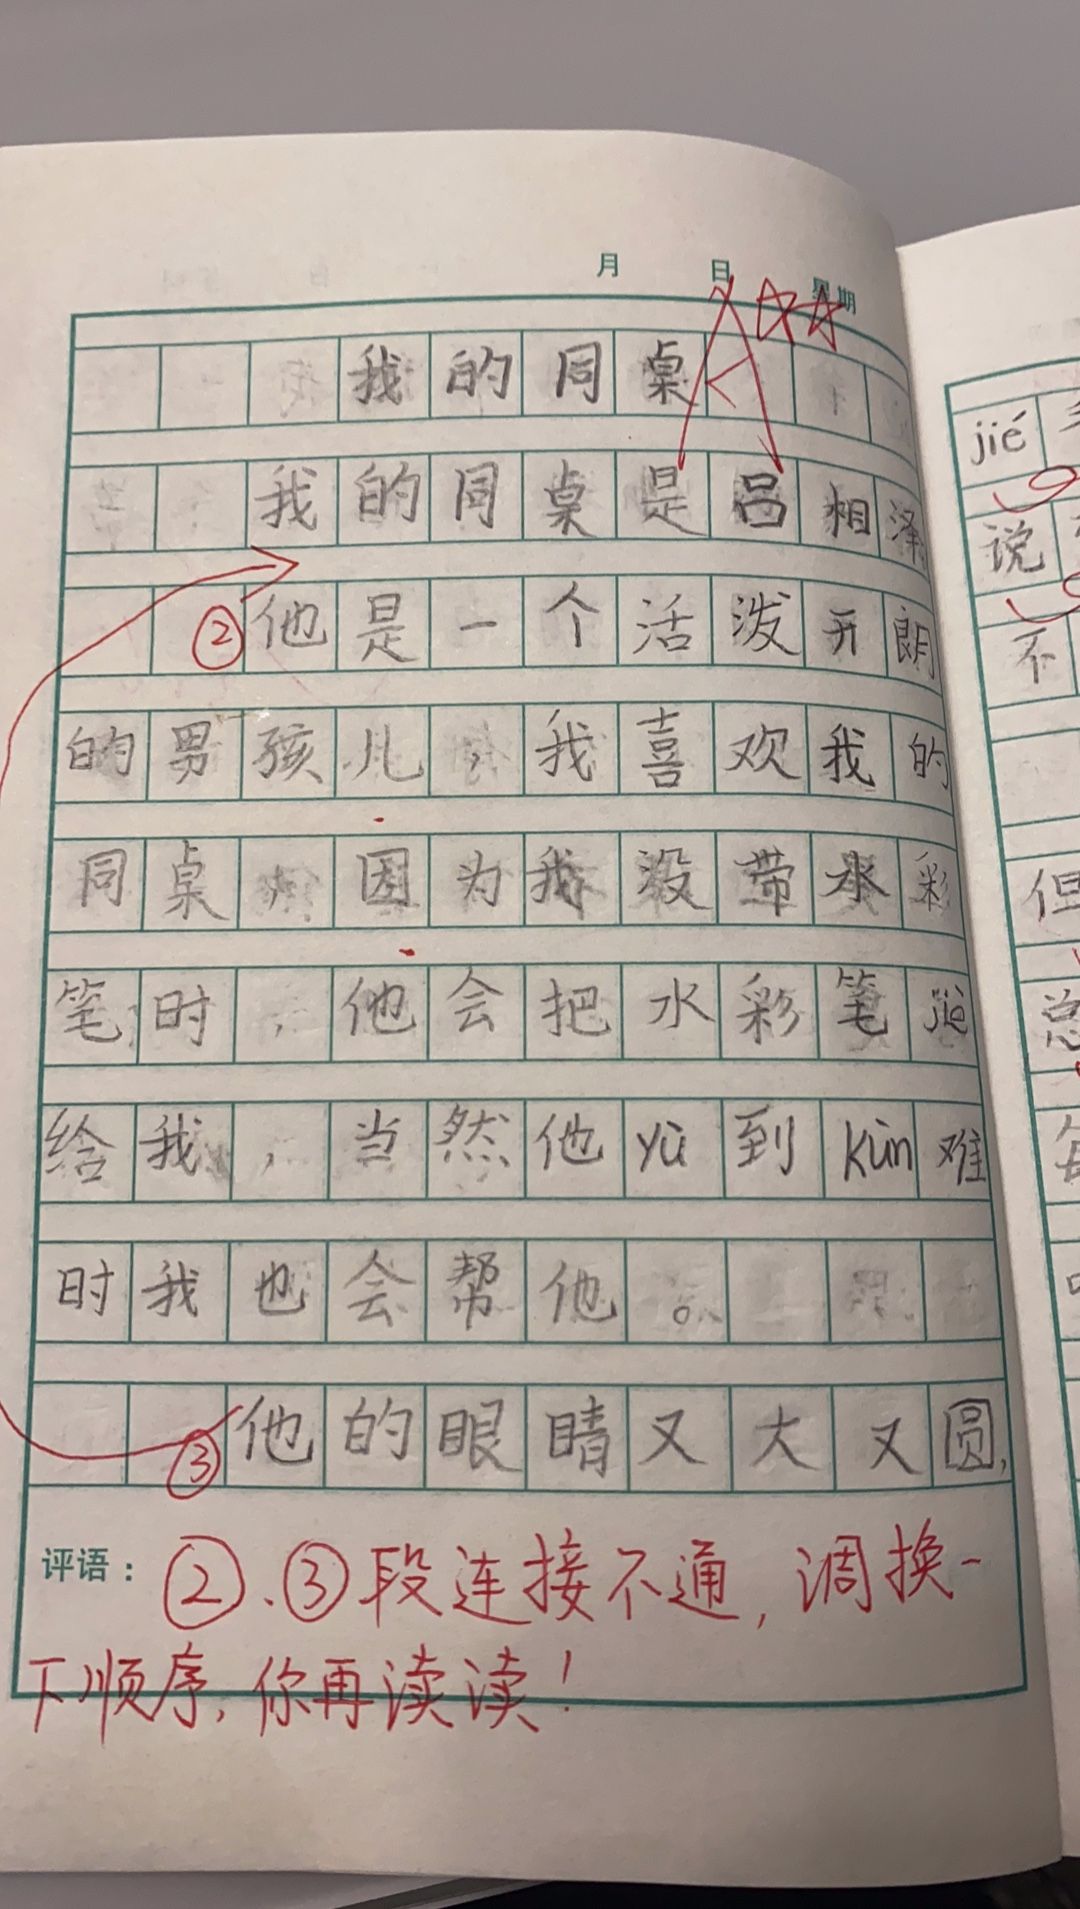 月 日 星期
A☆☆
我的同桌
我的同桌是吕相泽
②他是一个活泼开朗
的男孩儿，我喜欢我的
同桌，因为我没带水彩
笔时，他会把水彩笔jiè
给我，当然他yù到kùn难
时我也会帮他。
③他的眼睛又大又圆，
评语：②、③段连接不通，调换一
下顺序，你再读读！
jié
说
不
但
总